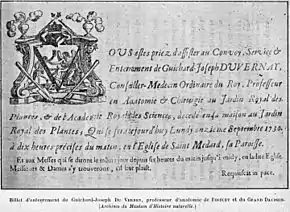 OUS estes priez d'assister au Convoy, Service &
Enterrement de Guichard-Joseph DUVERNAY,
Conseiller-Medecin Ordinaire du Roy, Professeur
en Anatomie & Chirurgie au Jardin Royal des
Plantes, & de l'Academie Royale des Sciences, decedé en sa maison au Jardin
Royal des Plantes; Qui se fera aujourd'huy Lundy onziéme Septembre 1730.
à dix heures précises du matin, en l'Eglise de Saint Medard, sa Paroisse.
Et aux Messes qui se diront le même jour depuis six heures du matin jusqu'à midy, en ladite Eglise.
Messieurs & Dames s'y trouveront, s'il leur plaist.
Requiescat in pace.
Billet d'enterrement de Guichard-Joseph Du Verney, professeur d'anatomie de Bossuet et du Grand Dauphin.
(Archives du Muséum d'Histoire naturelle.)